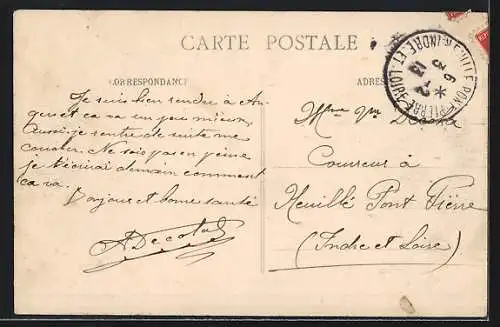 CARTE POSTALE
CORRESPONDANCE
ADRES
NEUILLE-PONT-PIERRE
INDRE-ET-LOIRE
6
3
13
Je suis bien rendre à
et ca va un peu mieux
Aussi je rentre de suite me
coucher. Ne sois pas en peine
je t'écrirai demain comment
ca va.
Bonjour et bonne santé
Mme Vve
Couvreur à
Neuillé Pont Pierre
(Indre et Loire)